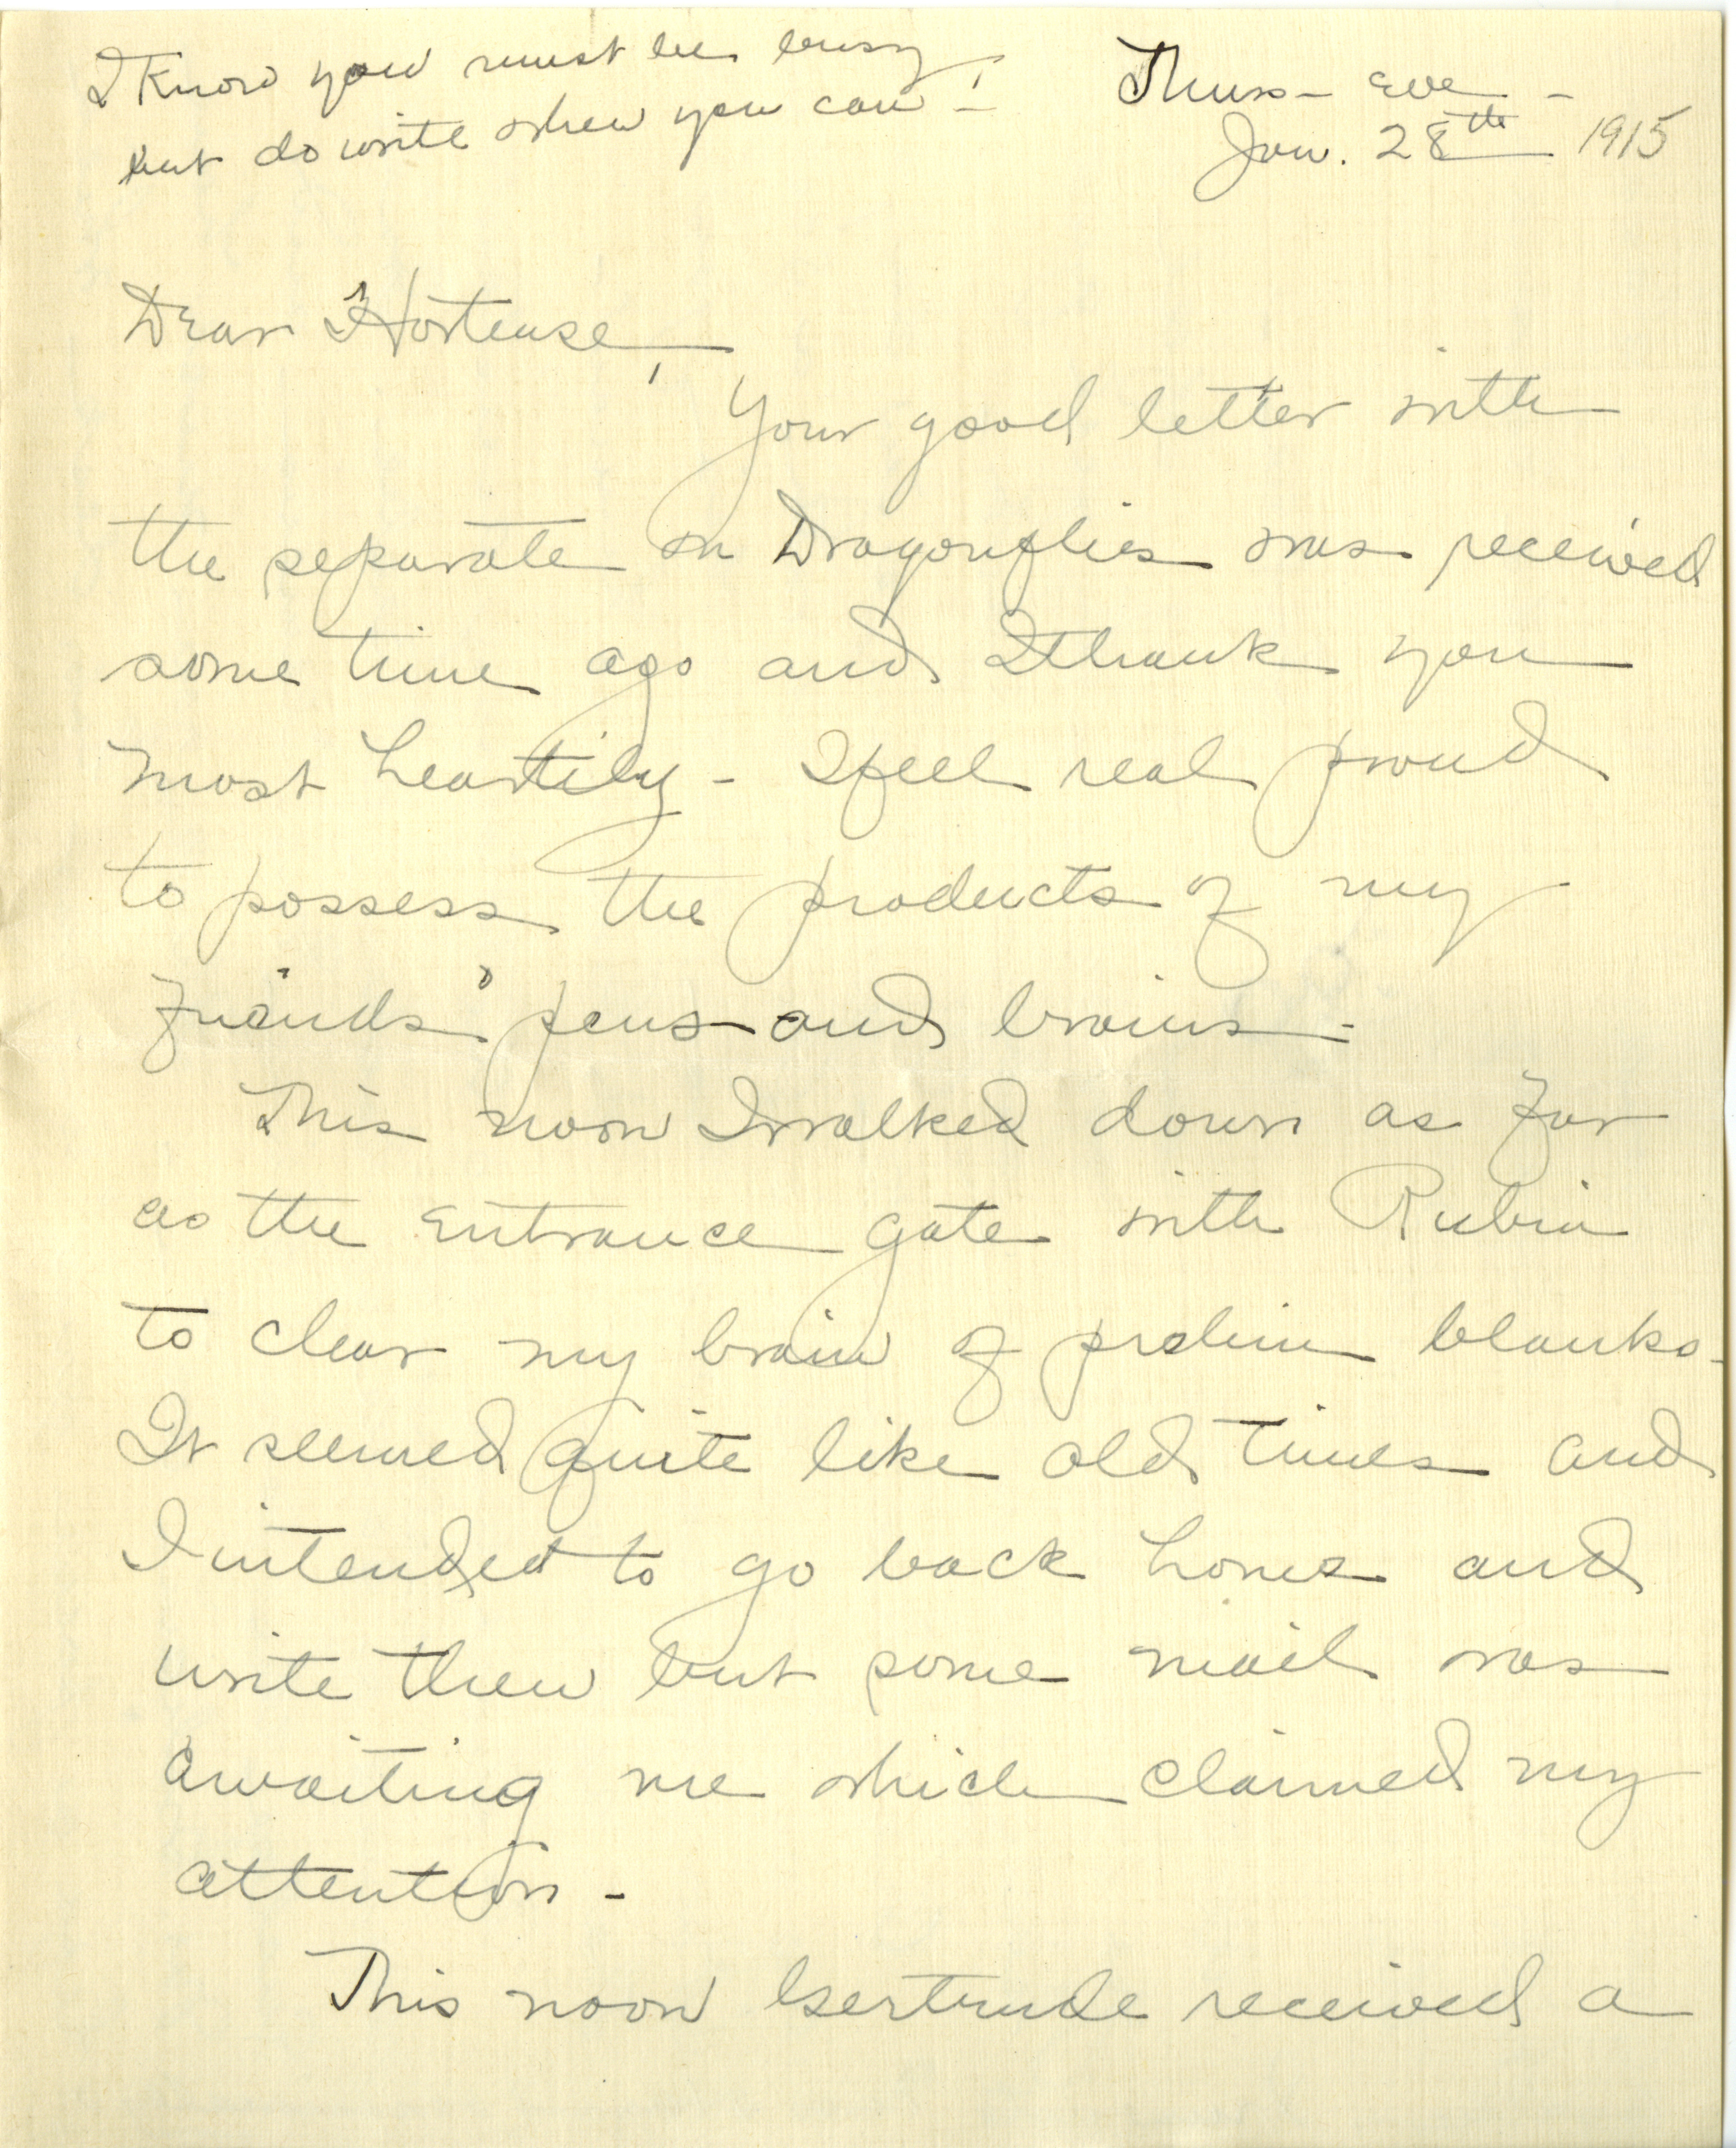 I know you must be busy,
but do write when you can -
Thurs - Eve -
Jan. 28th 1915
Dear Hortense,
Your good letter with
the separate on Dragonflies was received
some time ago and I thank you
most heartily - I feel real proud
to possess the products of my
friends' pens and brains -
This noon I walked down as far
as the entrance gate with Rubin
to clear my brain of prelim blanks -
It seemed quite like old times and
I intended to go back home and
write then but some mail was
awaiting me which claimed my
attention -
This noon Gertrude received a